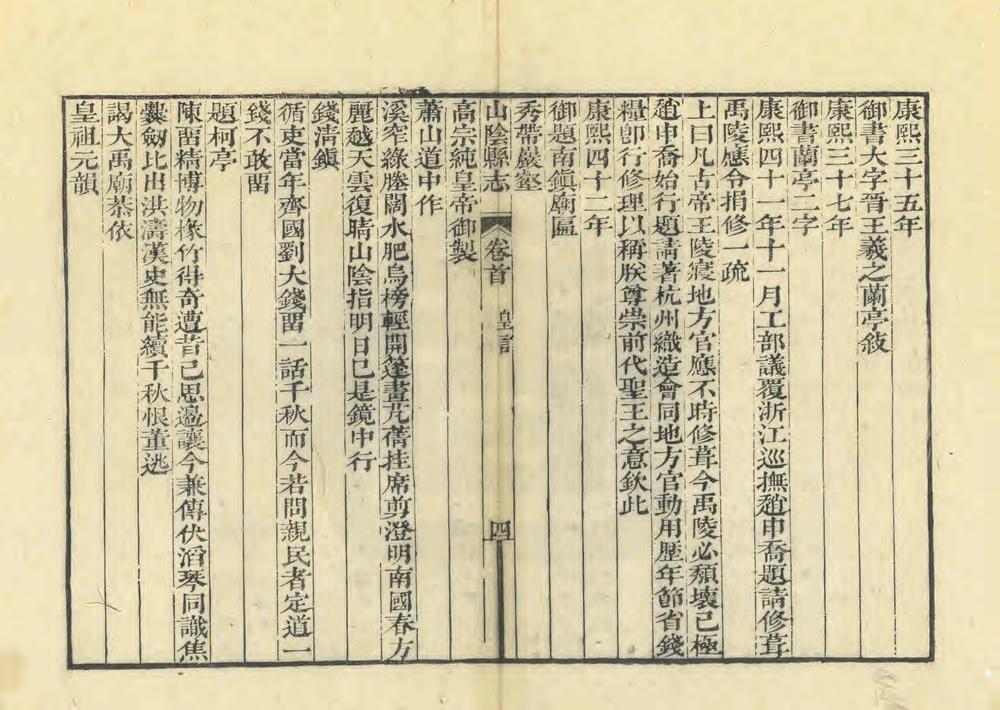 康熙三十五年
御書大字晉王羲之蘭亭敘
康熙三十七年
御書蘭亭二字
康熙四十一年十一月工部議覆浙江巡撫趙申喬題請修葺
禹陵應令捐修一疏
上曰凡古帝王陵寢地方官應不時修葺今禹陵必頹壞已極
趙申喬始行題請著杭州織造會同地方官動用歷年節省錢
糧卽行修理以稱朕尊崇前代聖王之意欽此
康熙四十二年
御題南鎮廟匾
秀帶巖壑
山陰縣志 卷首 皇言 四
高宗純皇帝御製
蕭山道中作
溪窄綠塍闊水肥烏榜輕開篷畫芃蒨挂席剪澄明南國春方
麗越天雲復晴山陰指明日已是鏡中行
錢淸鎭
循吏當年齊國劉大錢畱一話千秋而今若問親民者定道一
錢不敢畱
題柯亭
陳畱精博物椽竹得奇遭昔已思邊讓今兼傳伏滔琴同識焦
爨劒比出洪濤漢史無能續千秋恨董逃
謁大禹廟恭依
皇祖元韻